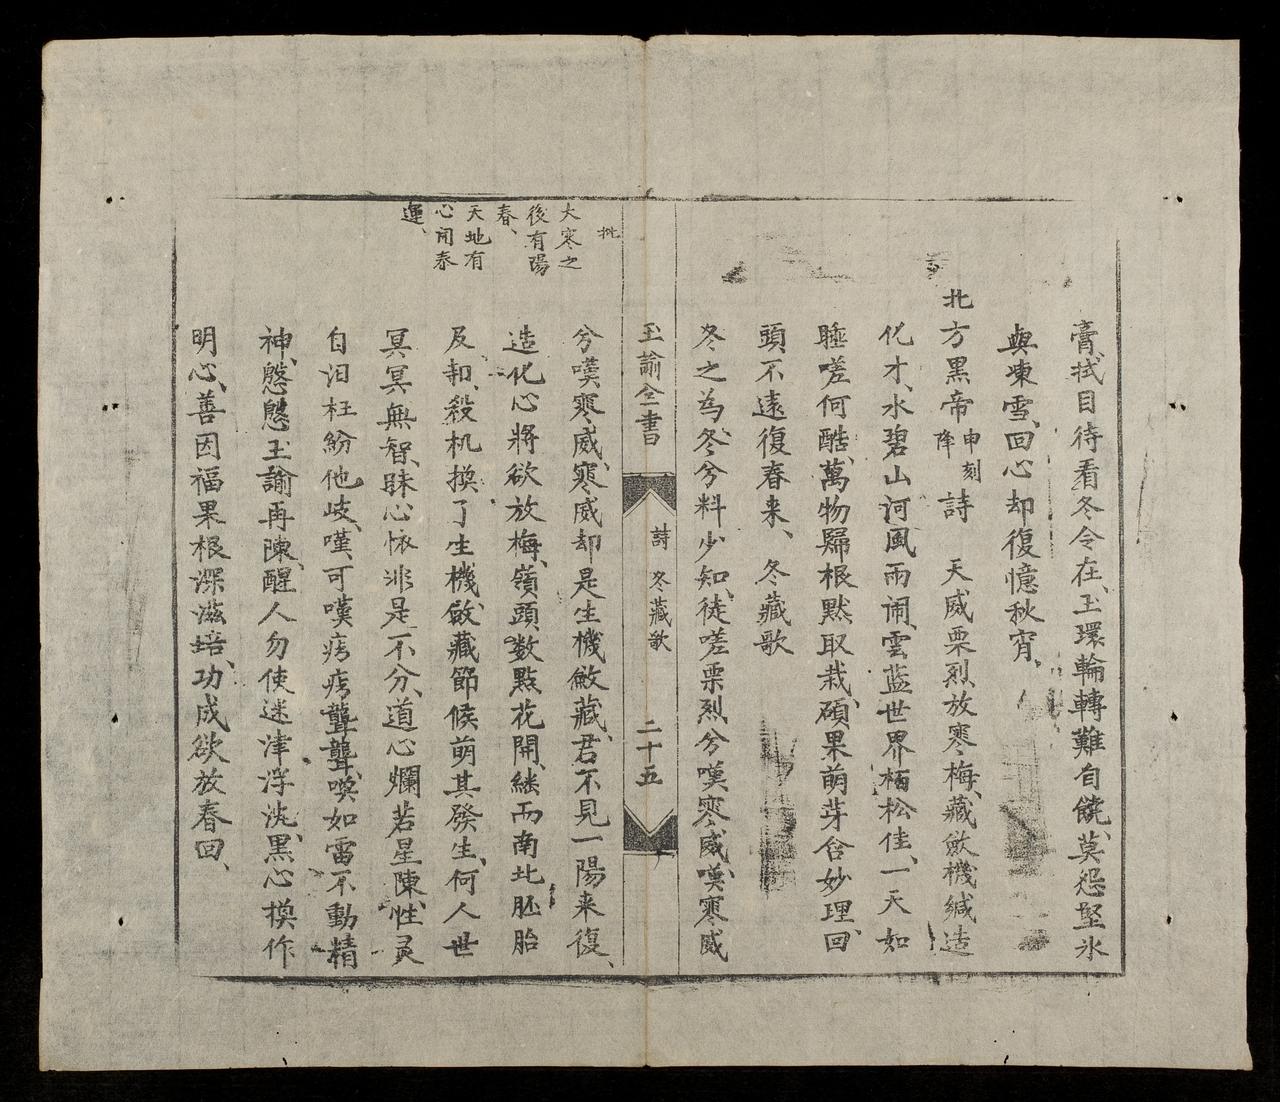 膏、拭目待看冬令在、玉環輪轉難自饒、莫怨堅氷
與凍雪、回心却復憶秋宵、
北方黒帝申刻降詩 天威栗烈放寒梅、藏歛機緘造
化才、水碧山河風雨闹、雲蓝世界栢松佳、一天如
睡嗟何酷、萬物歸根黙取栽、碩果萌芽含妙理、回
頭不遠復春来、 冬藏歌
冬之為、冬兮料少知、徒嗟栗烈兮嘆寒威、嘆寒威
玉諭全書 詩 冬藏歌 二十五
批
大寒之
後有陽
春、
天地有
心闭泰
運、
兮嘆寒威、寒威却是生機斂藏、君不見一陽来復、
造化心將欲放梅、嶺頭数點花開、継而南北胚胎
及剥、殺机換了生機、斂藏節候萌其發生、何人世
冥冥無智、昧心怀非是不分、道心爛若星陳、性灵
自汩枉紛他歧、嘆可嘆痔痔聾聾、喚如雷不動精
神、慇慇玉諭再陳、醒人勿使迷津浮沈、黒心換作
明心、善因福果根深滋培、功成欲放春回、